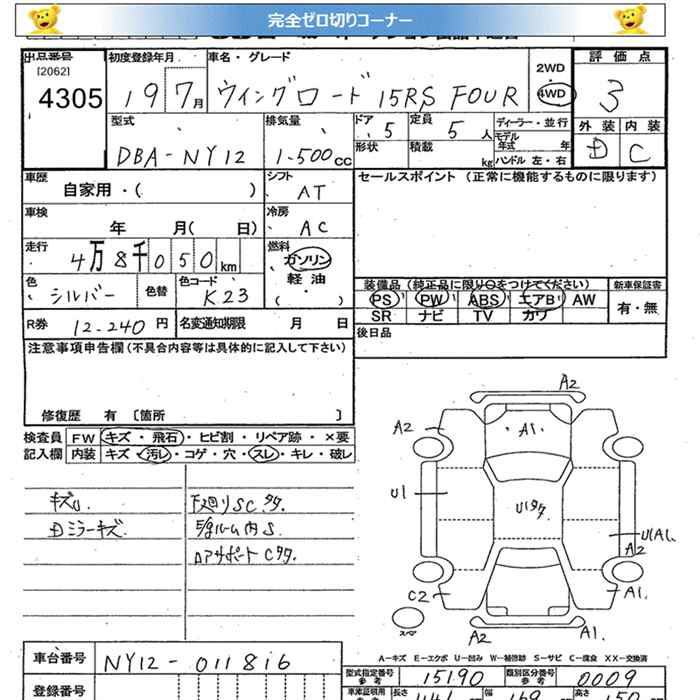 完全ゼロ切りコーナー
出品番号 初度登録年月 車名・グレード 2WD 評価点
[2062]
4305 19 7月 ウイングロード 15RS FOUR 4WD 3
型式 排気量 ドア 定員 ディーラー・並行 外装 内装
DBA-NY12 1.500cc 5 5人 モデル年式 年 D C
形状 積載 kg ハンドル 左・右
車歴 シフト セールスポイント (正常に機能するものに限ります)
自家用・( ) AT
車検 年 月( 日) 冷房 AC
走行 4万8千050km 燃料 ガソリン
軽油
( )
色 シルバー 色替 色コード K23
装備品 (純正品に限り○をつけてください) 新車保証書
PS PW ABS エアB AW 有・無
SR ナビ TV カワ
R券 12.240円 名変通知期限 月 日
後日品
注意事項申告欄 (不具合内容等は具体的に記入して下さい)
修復歴 有 〔箇所 〕
検査員 FW キズ・飛石・ヒビ割・リペア跡・×要
記入欄 内装 キズ・汚レ・コゲ・穴・スレ・キレ・破レ
キズU. 下廻りSCタタ.
Dミラーキズ. 5/gルーム内S
Dアサポート Cタタ
A2
A2 A1.
U1 U1タタ U1A1.
A2
C2 A1.
スペア A2 A1.
A-キズ E-エクボ U-凹み W-補修跡 S-サビ C-腐食 XX-交換済
車台番号 NY12-011816
型式指定番号 参考 15190 類別区分番号 参考 0009
登録番号
車庫証明用 長さ 幅 高さ